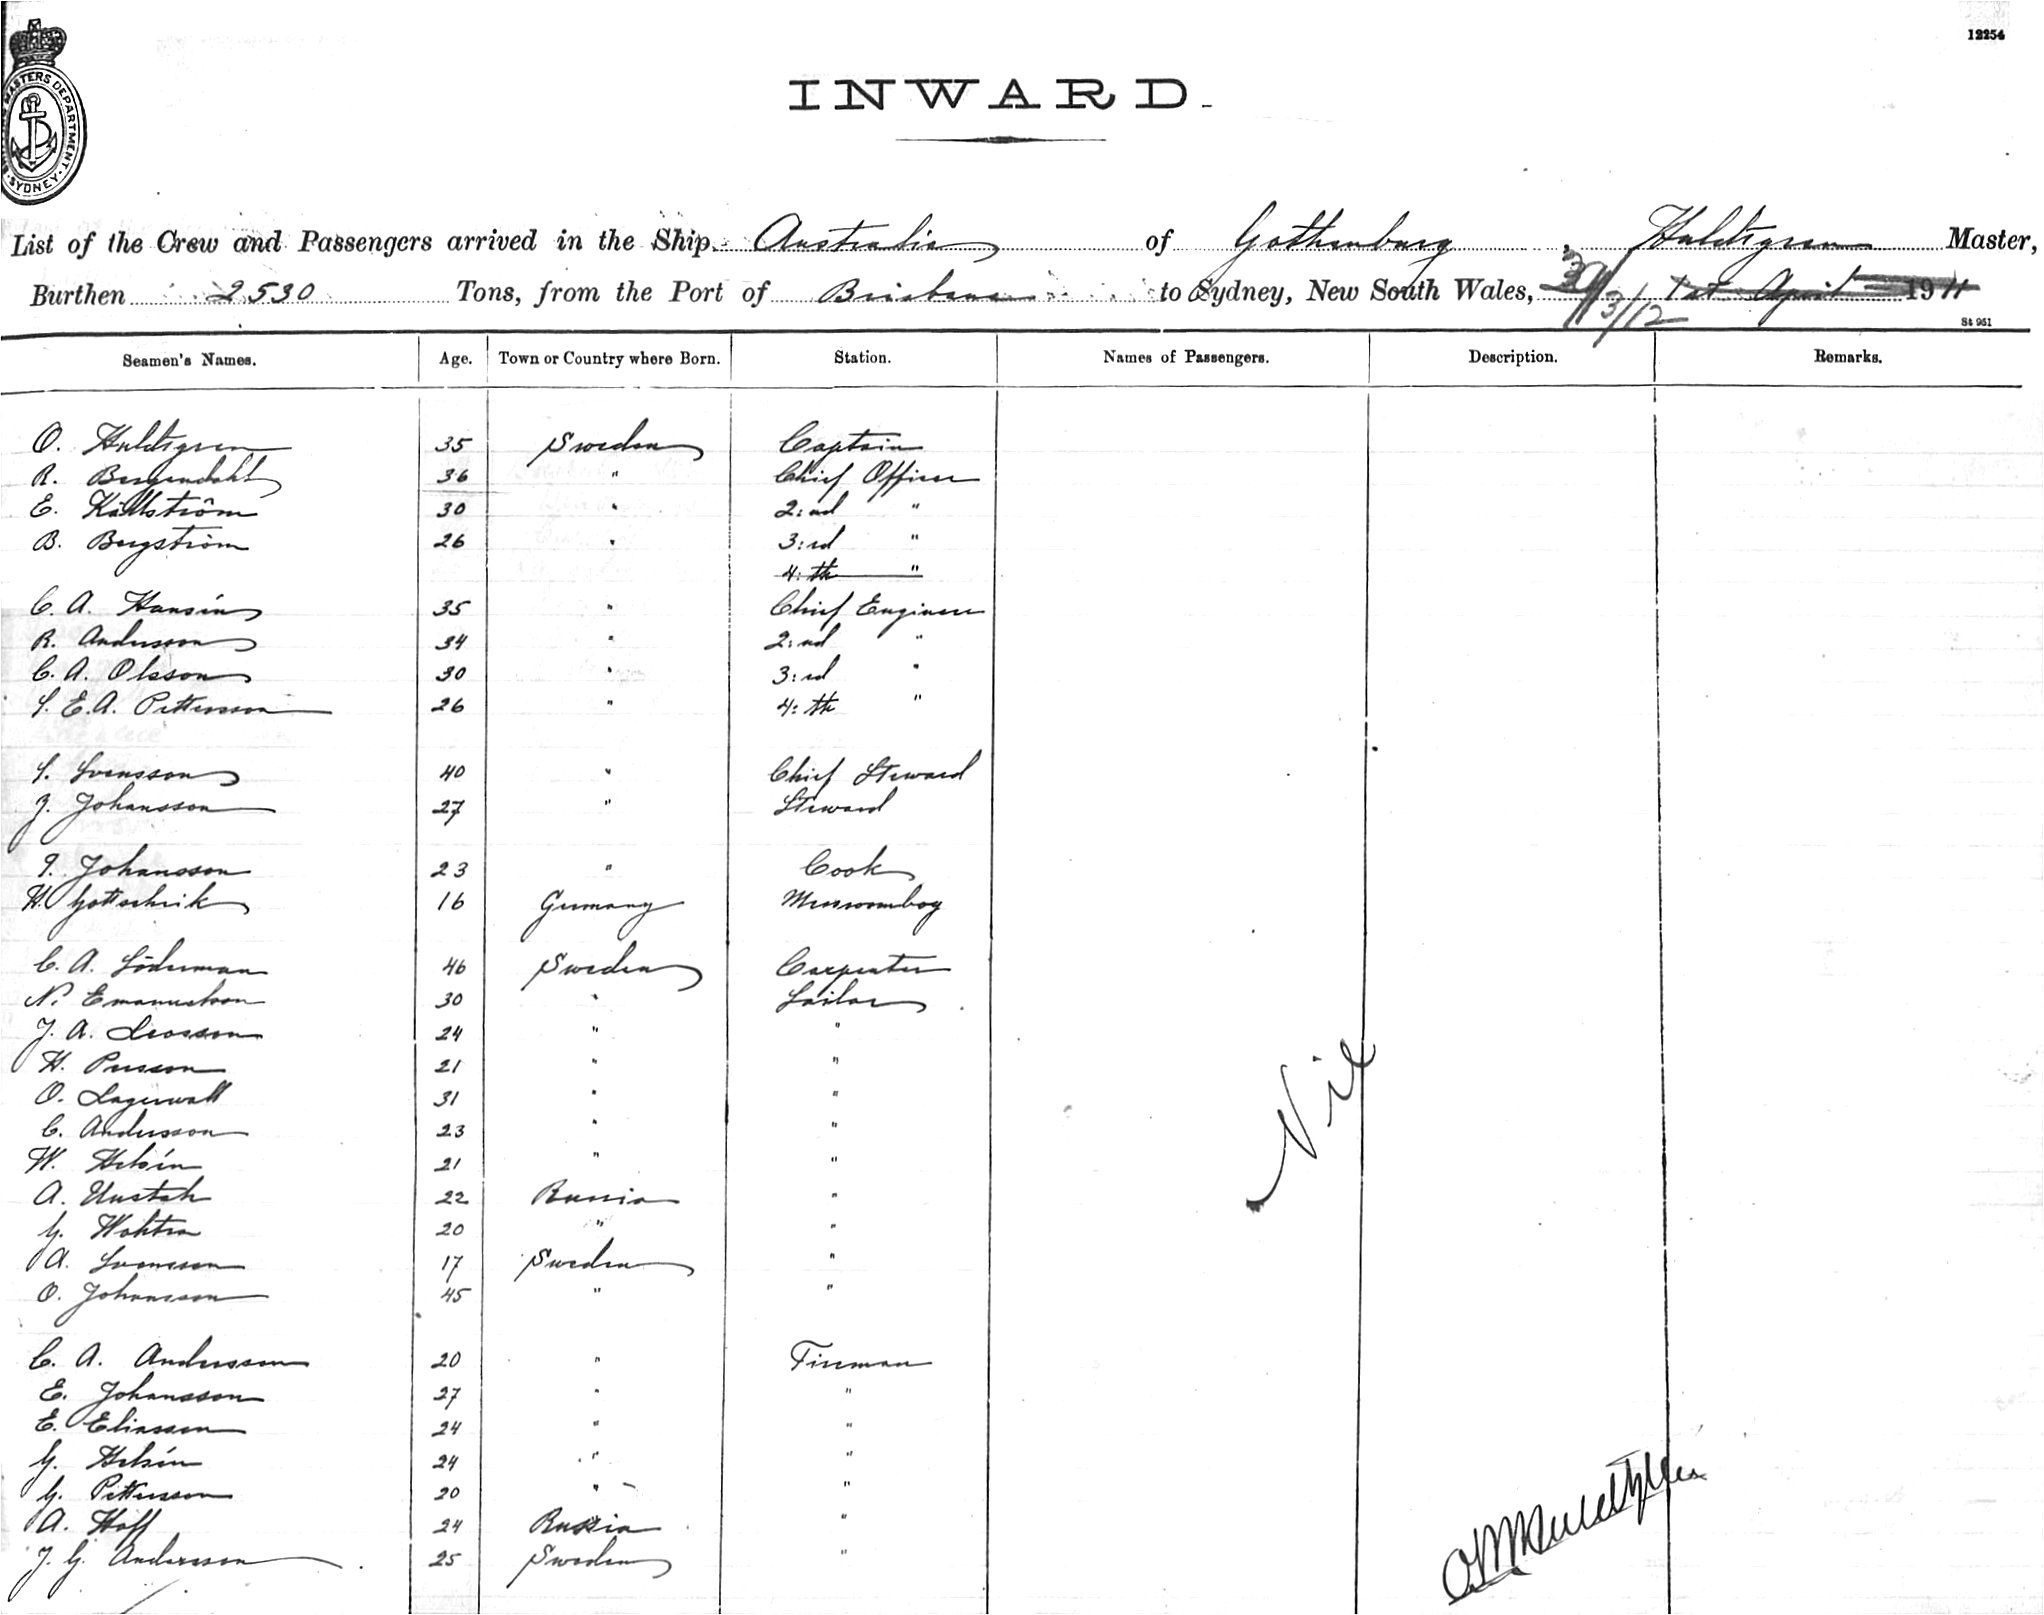 12254
MASTERS DEPARTMENT
SYDNEY
INWARD.
List of the Crew and Passengers arrived in the Ship Australia of Gothenburg, Hultgren Master,
Burthen 2530 Tons, from the Port of Brisbane to Sydney, New South Wales, 30/3/12 1st April 1911
St 951
Seamen's Names. Age. Town or Country where Born. Station. Names of Passengers. Description. Remarks.
O. Hultgren 35 Sweden Captain
R. Bergendahl 36 " Chief Officer
E. Källström 30 " 2:nd "
B. Bergström 26 " 3:rd "
4:th "
C. A. Hansén 35 " Chief Engineer
R. Andersson 34 " 2:nd "
C. A. Olsson 30 " 3:rd "
S. E. A. Pettersson 26 " 4:th "
S. Svensson 40 " Chief Steward
J. Johansson 27 " Steward
I. Johansson 23 " Cook
H. Gottschik 16 Germany Messroomboy
C. A. Söderman 46 Sweden Carpenter
N. Emanuelsson 30 " Sailor
J. A. Leosson 24 " "
H. Persson 21 " "
O. Lagerwall 31 " "
C. Andersson 23 " "
W. Helsén 21 " "
A. Unstak 22 Russia "
G. Wohtra 20 " "
A. Svensson 17 Sweden "
O. Johansson 45 " "
Nil
C. A. Andersson 20 " Fireman
E. Johansson 27 " "
E. Eliasson 24 " "
G. Helsén 24 " "
G. Pettersson 20 " "
A. Hoff 24 Russia "
J. G. Andersson 25 Sweden "